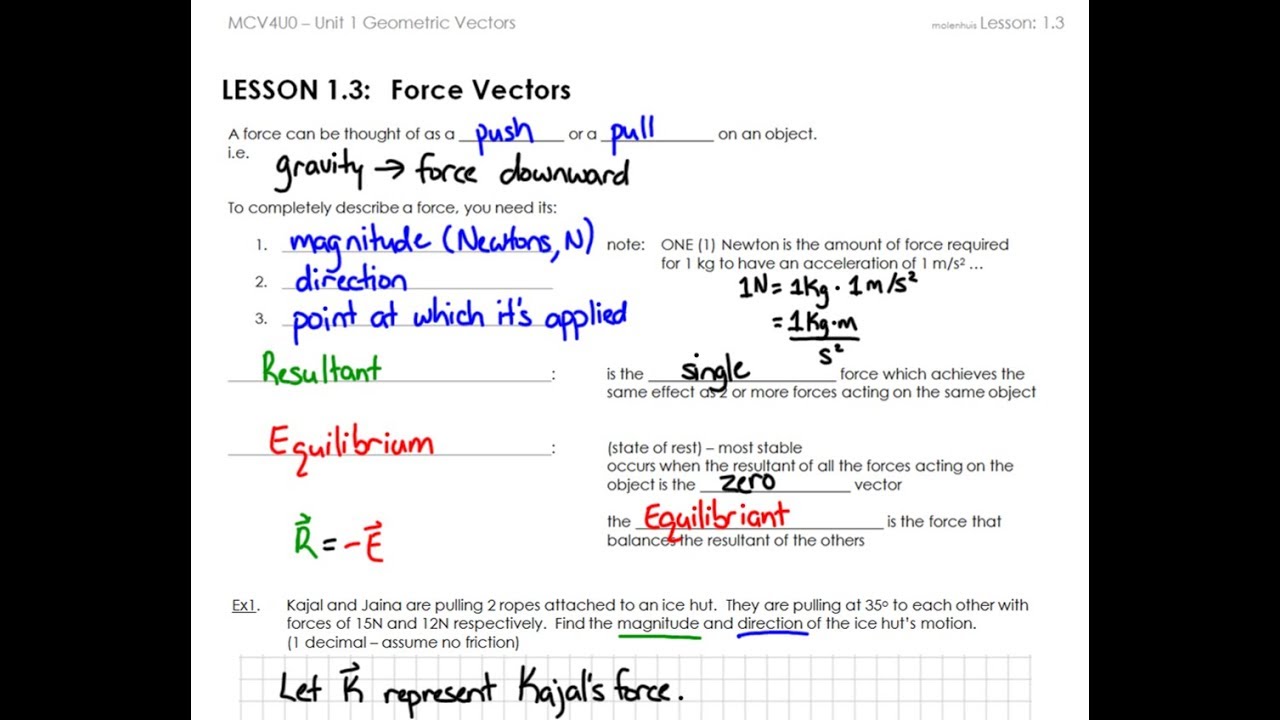 MCV4U0 – Unit 1 Geometric Vectors molenhuis Lesson: 1.3
LESSON 1.3: Force Vectors
A force can be thought of as a push or a pull on an object.
i.e. gravity → force downward
To completely describe a force, you need its:
1. magnitude (Newtons, N) note: ONE (1) Newton is the amount of force required
for 1 kg to have an acceleration of 1 m/s² ...
2. direction 1N = 1Kg · 1m/s²
3. point at which it's applied = 1Kg·m
s²
Resultant : is the single force which achieves the
same effect as 2 or more forces acting on the same object
Equilibrium : (state of rest) – most stable
occurs when the resultant of all the forces acting on the
object is the zero vector
the Equilibriant is the force that
balances the resultant of the others
R⃗ = -E⃗
Ex1. Kajal and Jaina are pulling 2 ropes attached to an ice hut. They are pulling at 35º to each other with
forces of 15N and 12N respectively. Find the magnitude and direction of the ice hut's motion.
(1 decimal – assume no friction)
Let K⃗ represent Kajal's force.